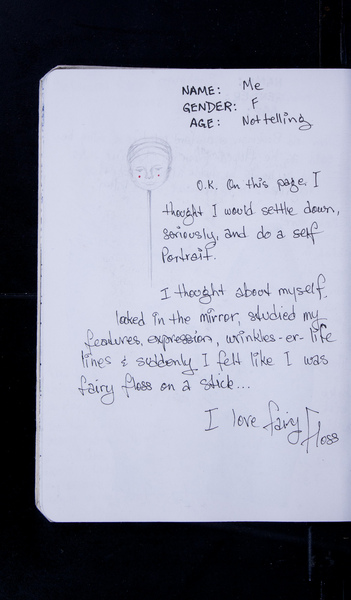 NAME: Me
GENDER: F
AGE: Not telling
O.K. On this page, I
thought I would settle down,
seriously, and do a self
Portrait.
I thought about myself.
looked in the mirror, studied my
features, expression, wrinkles-er-life
lines & suddenly I felt like I was
fairy floss on a stick...
I love fairy
floss